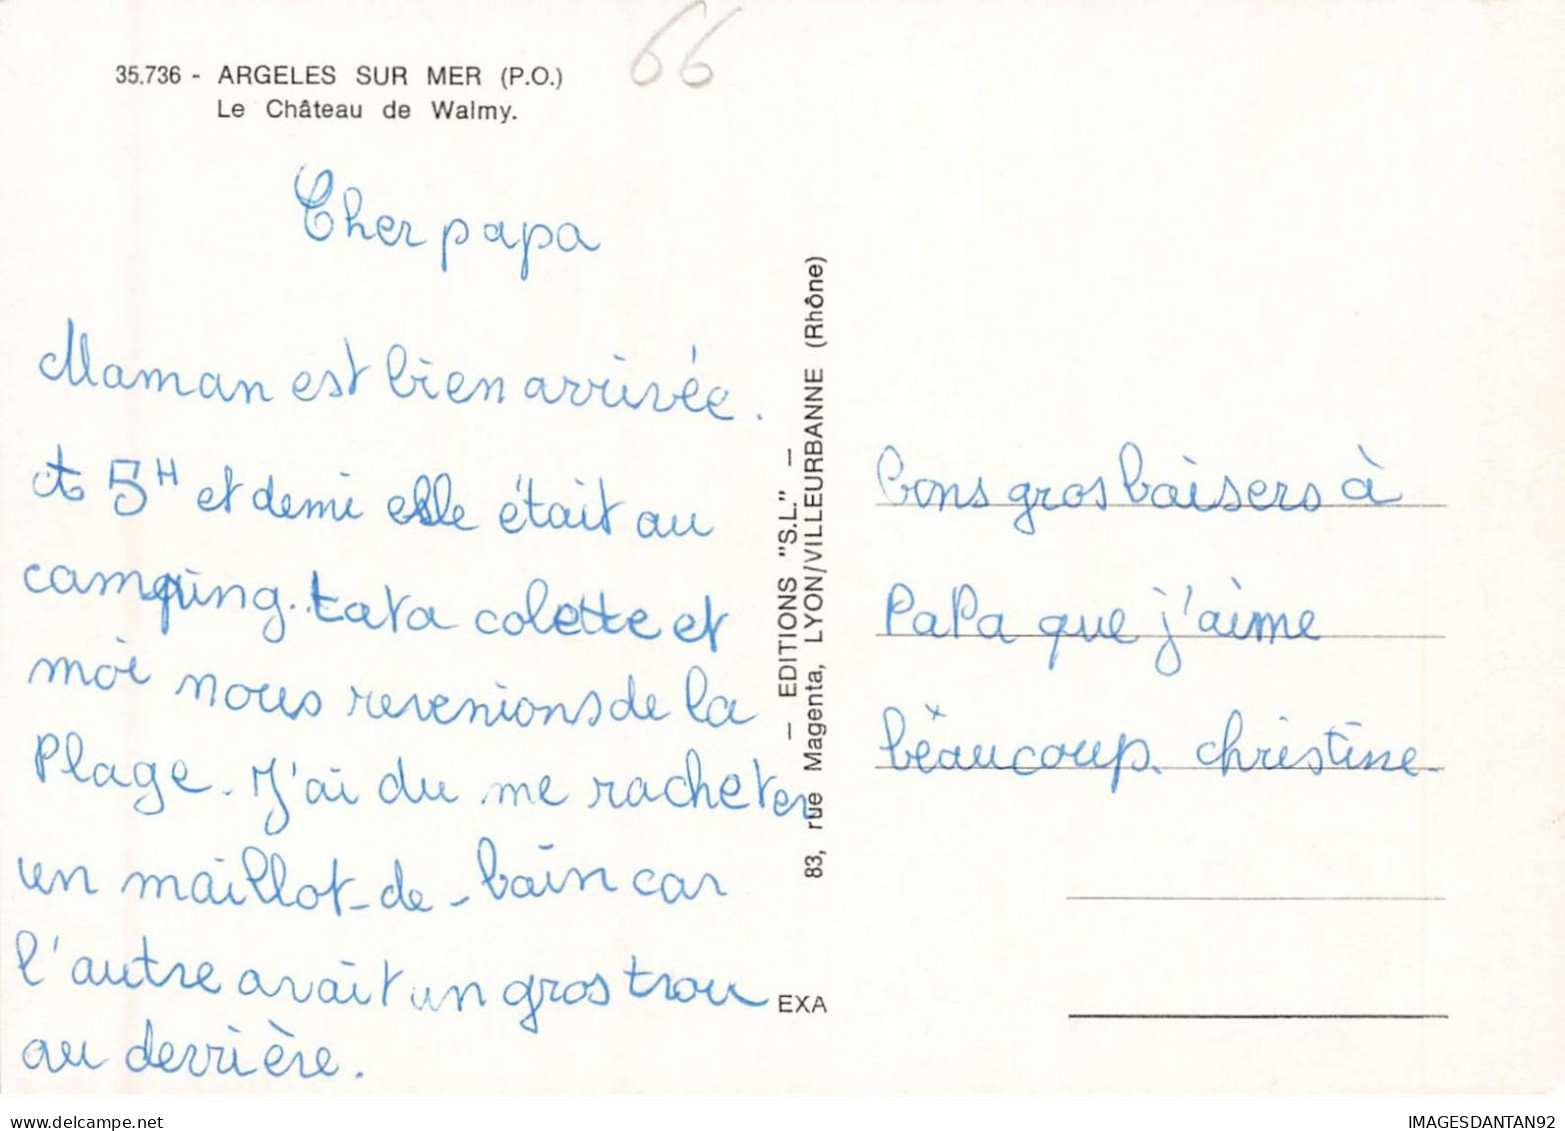 66
35.736 - ARGELES SUR MER (P.O.)
Le Château de Walmy.
Cher papa
Maman est bien arrivée.
A 5H et demi elle était au
camping. tata colette et
moi nous revenions de la
Plage. J'ai du me racheter
un maillot-de-bain car
l'autre avait un gros trou
au derrière.
— EDITIONS "S.L." —
83, rue Magenta, LYON/VILLEURBANNE (Rhône)
EXA
bons gros baisers à
PaPa que j'aime
beaucoup. christine.
delcampe.net
IMAGESDANTAN92